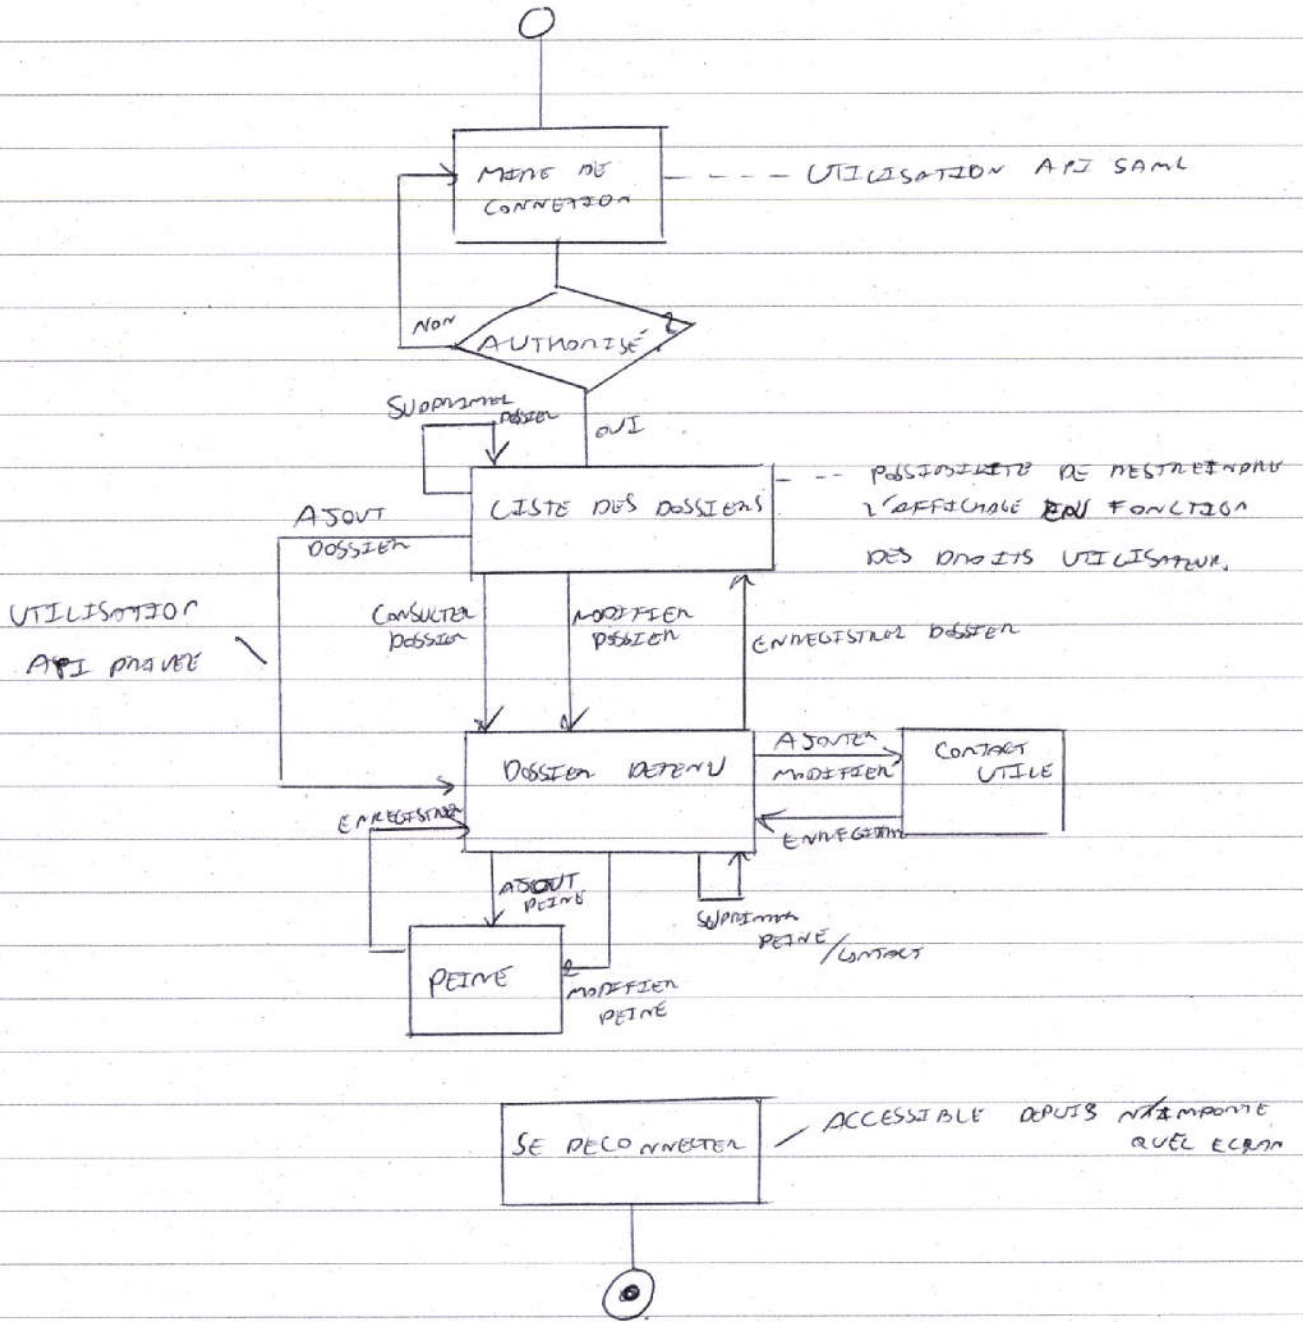 MIRE DE
CONNEXION
UTILISATION API SAML
NON
AUTHORISÉ ?
SUPPRIMER
DOSSIER
OUI
LISTE DES DOSSIERS
POSSIBILITE DE RESTREINDRE
L'AFFICHAGE EN FONCTION
DES DROITS UTILISATEUR.
AJOUT
DOSSIER
UTILISATION
API PRIVEE
CONSULTER
DOSSIER
MODIFIER
DOSSIER
ENREGISTRER DOSSIER
DOSSIER DETENU
AJOUTER
MODIFIER
CONTACT
UTILE
ENREGISTRER
ENREGISTRER
AJOUT
PEINE
SUPPRIMER
PEINE
/CONTACT
PEINE
MODIFIER
PEINE
SE DECONNECTER
ACCESSIBLE DEPUIS N'IMPORTE
QUEL ECRAN